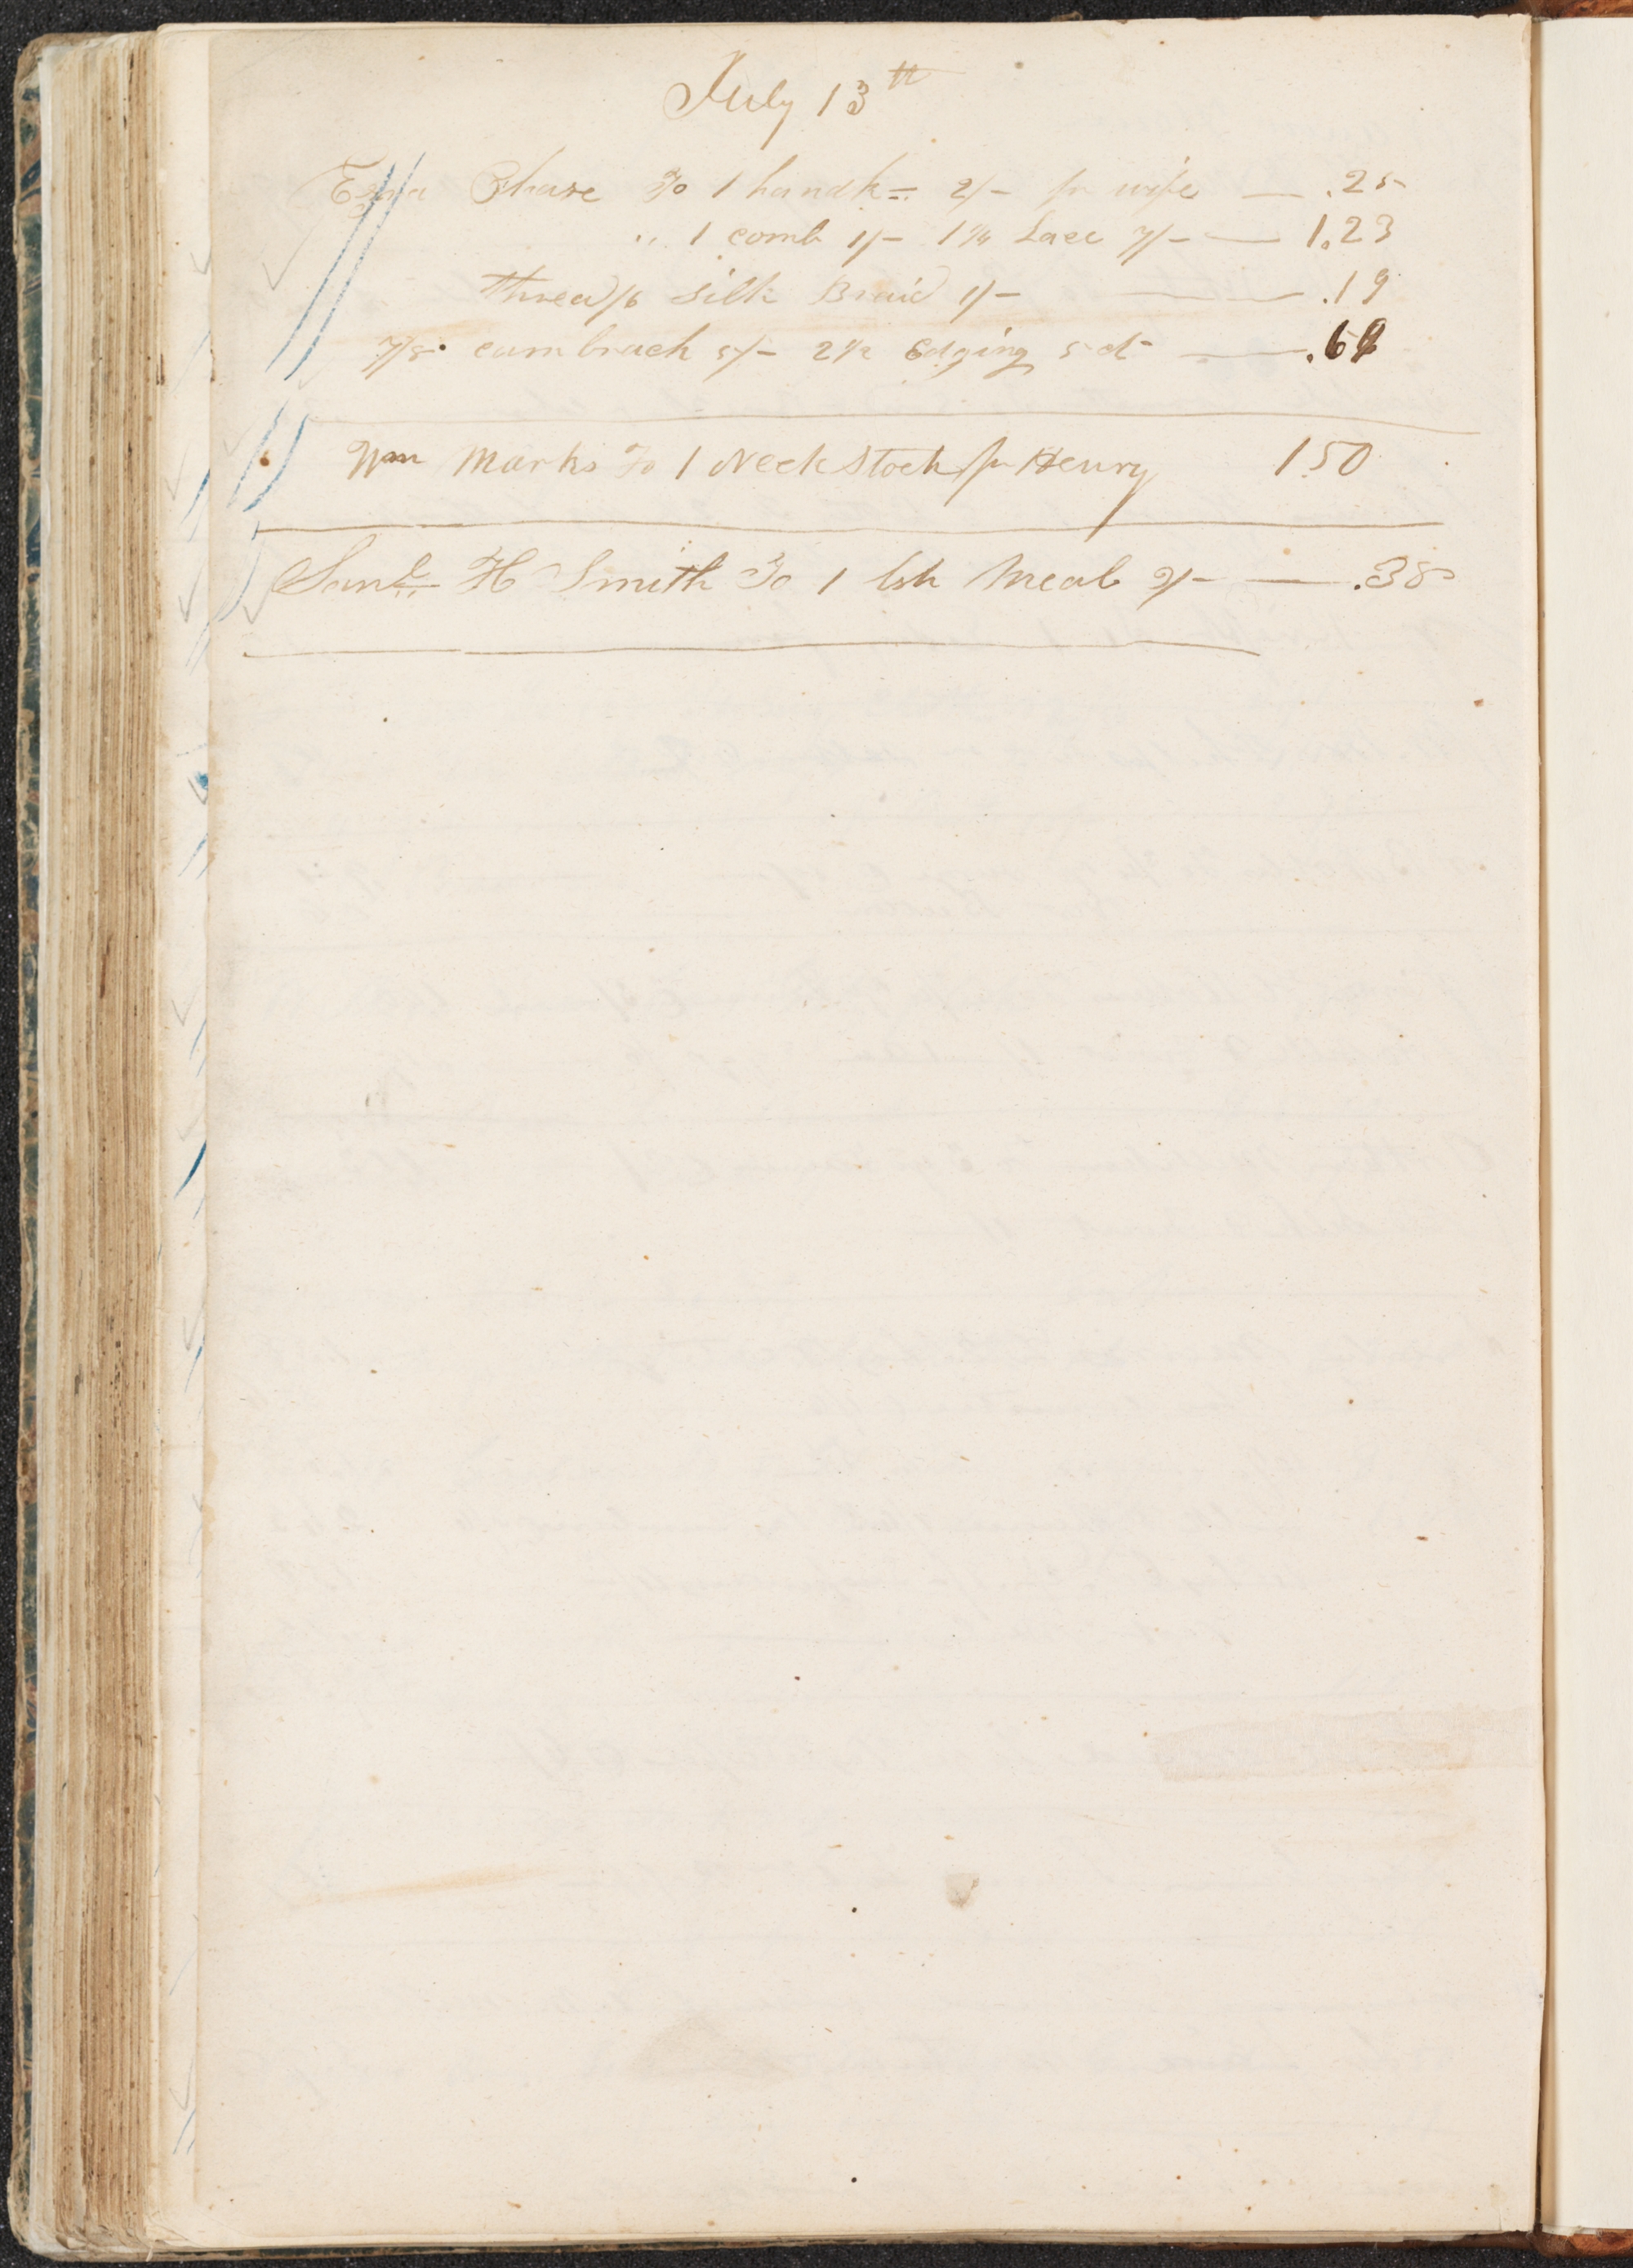 July 13th
Ezra Chase To 1 handk= 2/- for wife — .25
,, 1 comb 1/- 1 1/4 Lace 7/- — 1.23
thread /6 Silk Braid 1/- — .19
7/8 cambrack 5/- 2 1/2 Edging 5 ct —
Wm Marks To 1 Neck Stock for Henry 1.50
Saml H Smith To 1 bh Meal — .38